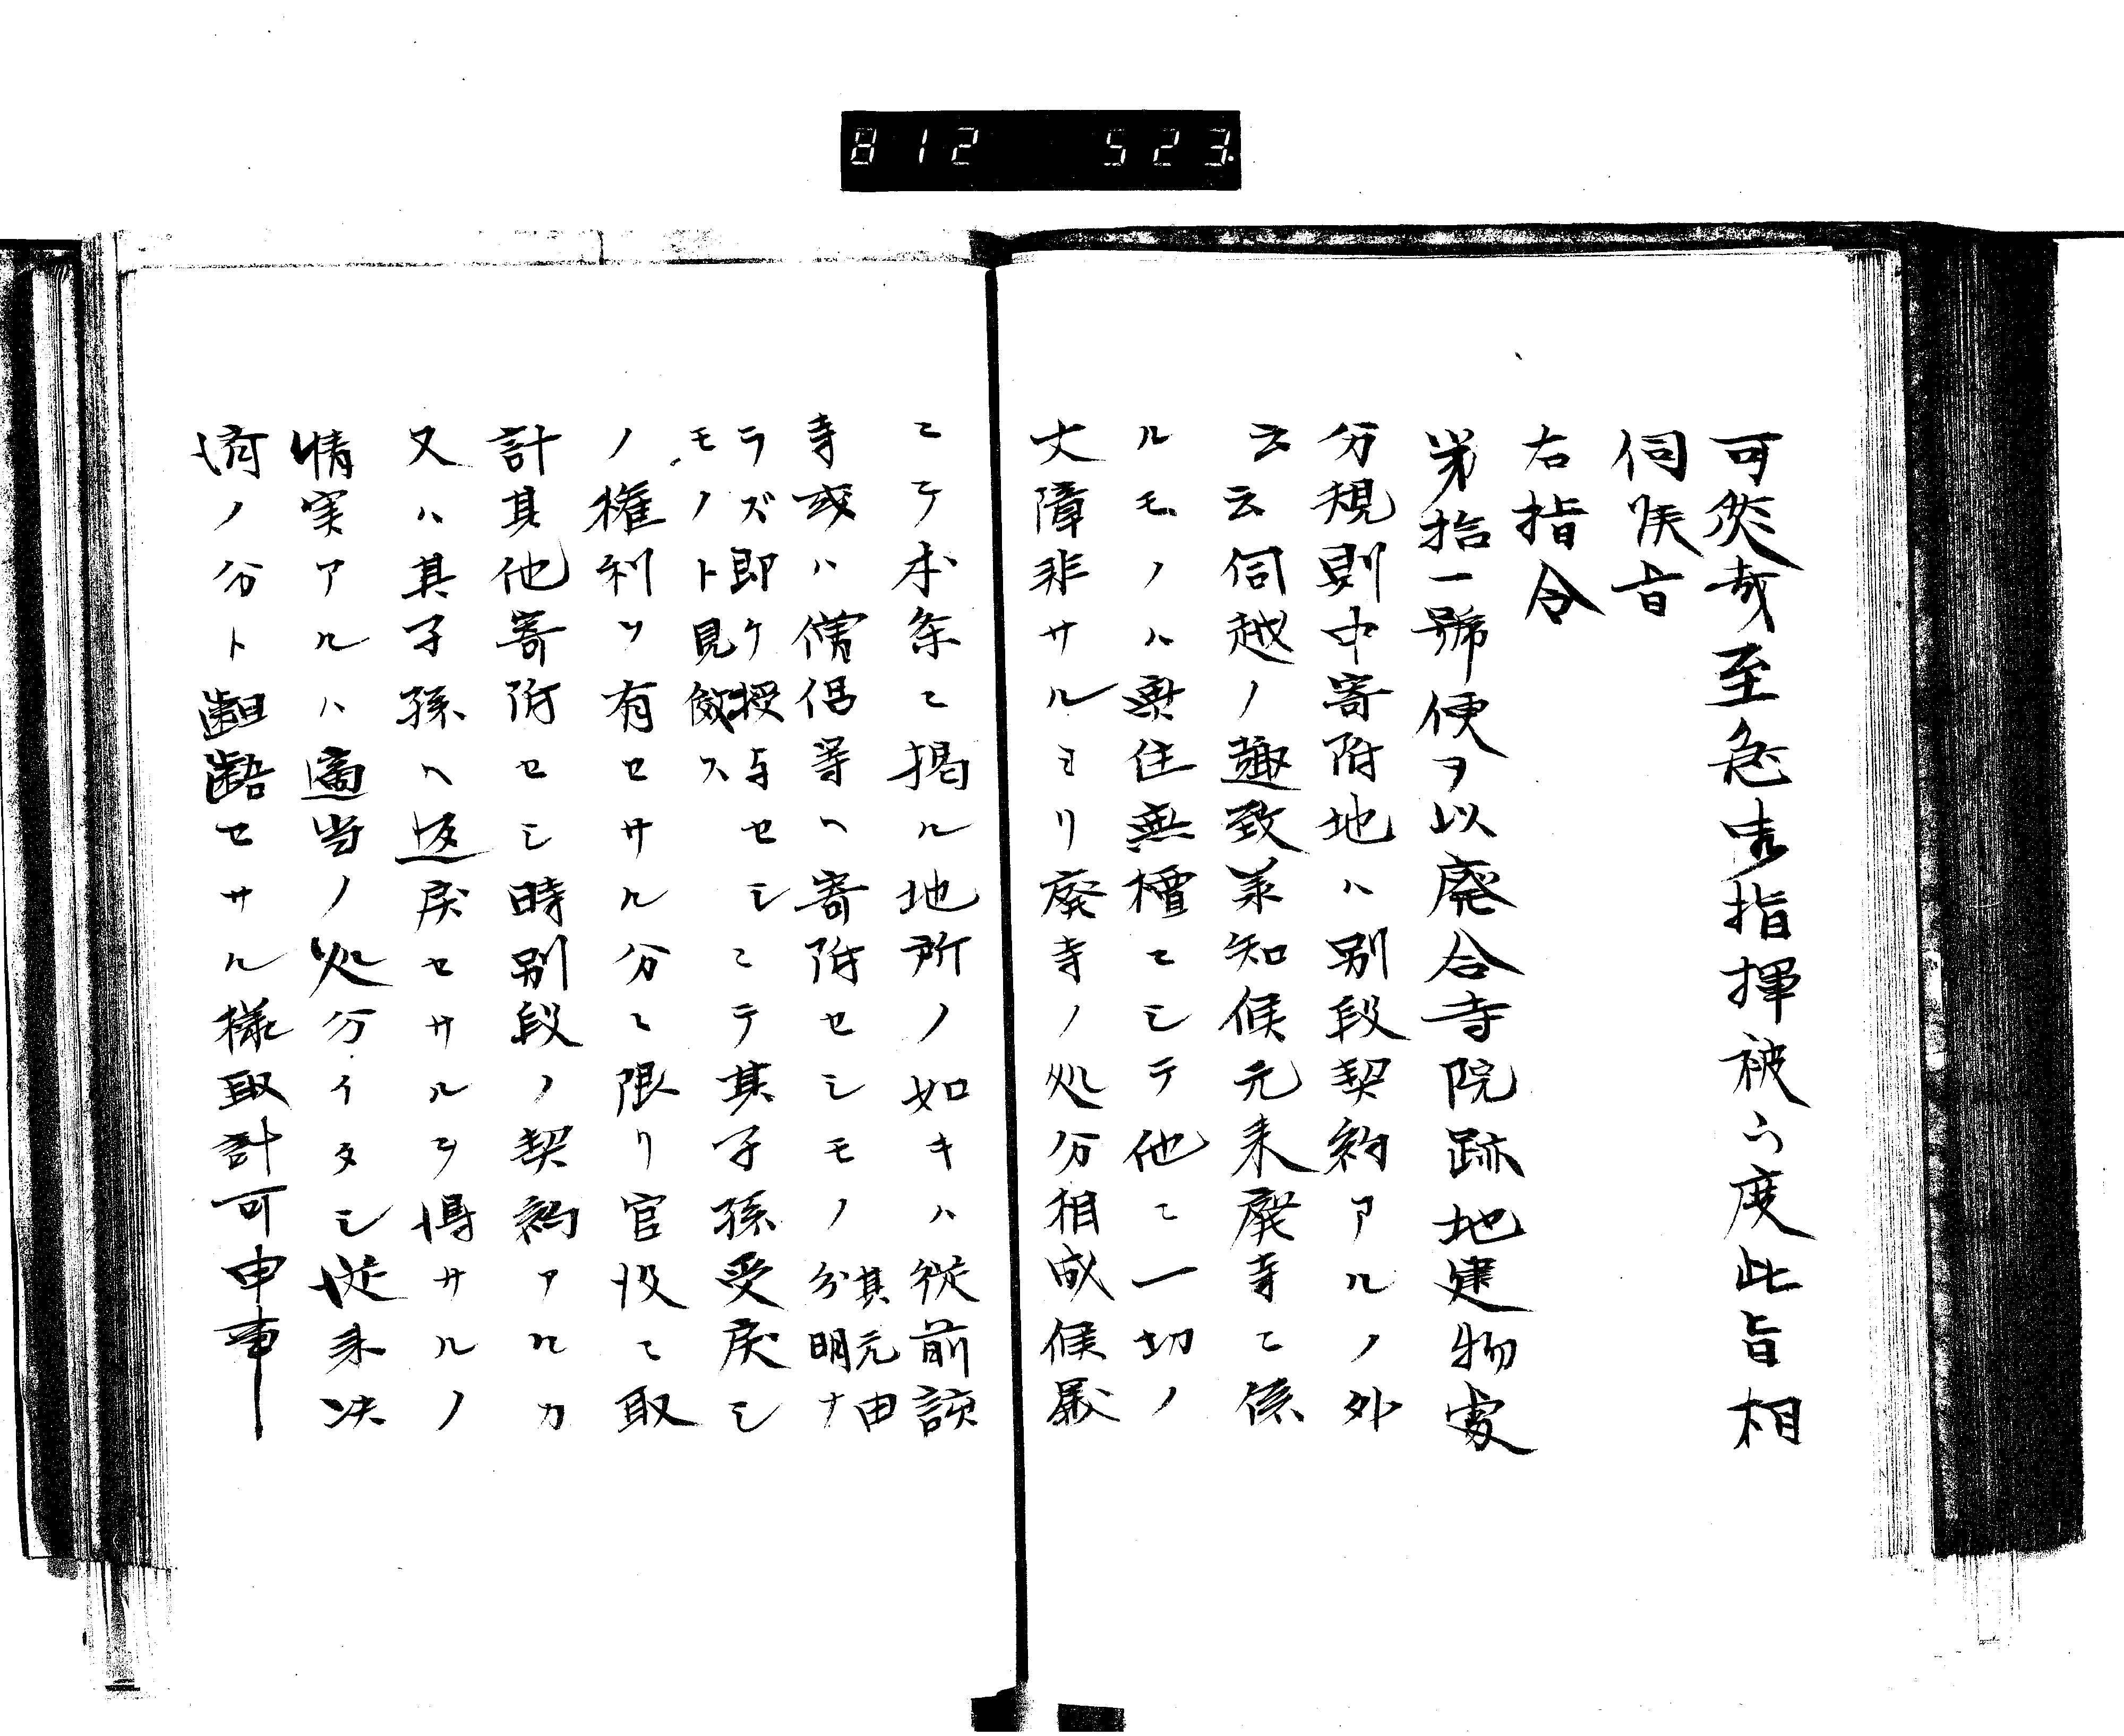 812 523
可然哉至急御指揮被下度此旨相
伺候旨
右指令
第拾一號便ヲ以廃合寺院跡地建物處
分規則中寄附地ハ別段契約アルノ外
云云伺越ノ趣致承知候元来廃寺ニ係
ルモノハ無住無檀ニシテ他ニ一切ノ
丈障非サルミリ廃寺ノ処分相成候厳
ニテ本条ニ掲ル地所ノ如キハ從前該
寺或ハ僧侶等ヘ寄附セシモノ其元由分明ナ
ラズ即ケ授与セシニテ其子孫受戻シ
モノト見做ス
ノ権利ヲ有セサル分ニ限リ官没ニ取
計其他寄附セシ時別段ノ契約アルカ
又ハ其子孫ヘ返戻セサルヲ得サルノ
情実アルハ適当ノ処分イタシ従来决
済ノ分ト齟齬セサル様取計可申事